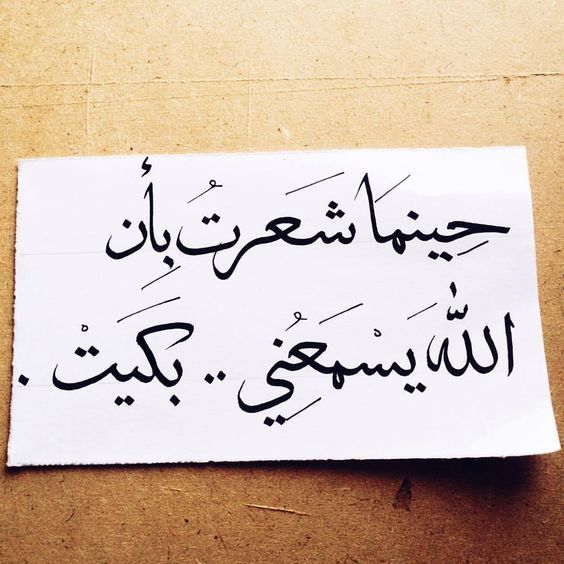 حِينَمَا شَعَرتُ بِأن
اللّٰه يَسْمَعُنِي .. بَكَيَتْ .